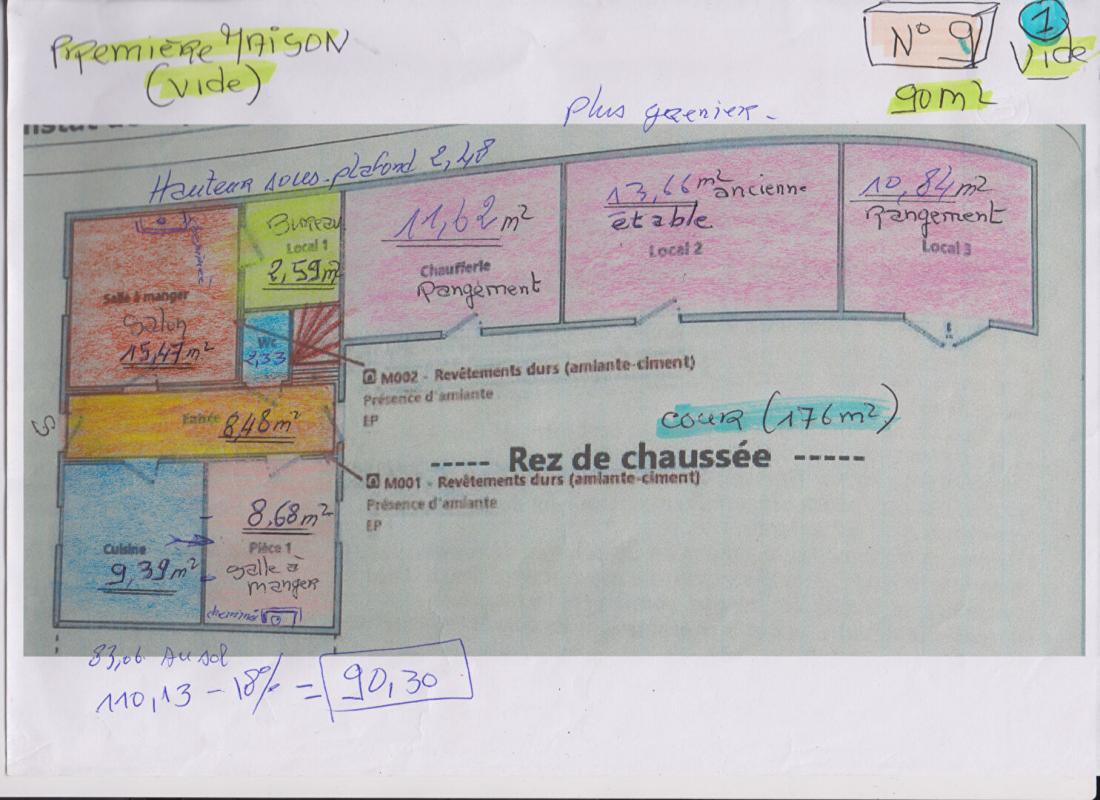 PREMIÈRE MAISON
(vide)
N° 9
1
Vide
90m2
Plus grenier.
Hauteur sous-plafond 2,48
Bureau
Local 1
2,59m2
11,62 m2
Chaufferie
Rangement
13,66 m2 ancienne
étable
Local 2
10,84 m2
Rangement
Local 3
Salle à manger
Salon
15,47 m2
WC
2,33
M002 - Revêtements durs (amiante-ciment)
Présence d'amiante
EP
cour (176 m2)
Entrée 8,48 m2
----- Rez de chaussée -----
M001 - Revêtements durs (amiante-ciment)
Présence d'amiante
EP
8,68 m2
Cuisine
9,39 m2
Pièce 1
Salle à
manger
cheminée
83,06 Au sol
110,13 - 18% = 90,30